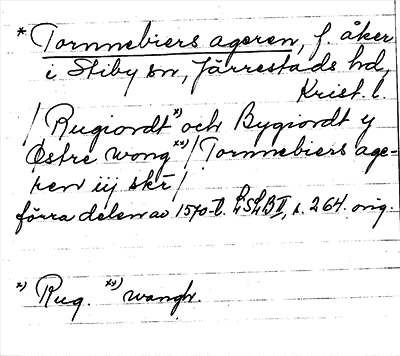 * Tornnebiers ageren, f. åker
i Stiby sn, Järrestads hd,
Krist. l.
/ Rugiordt *) och Bygiordt y
Østre wong **) / Tornnebiers age-
ren iij skr /
förra delen av 1570-t. LSLB II, s. 264. orig.
*) Rug. **) wangh.